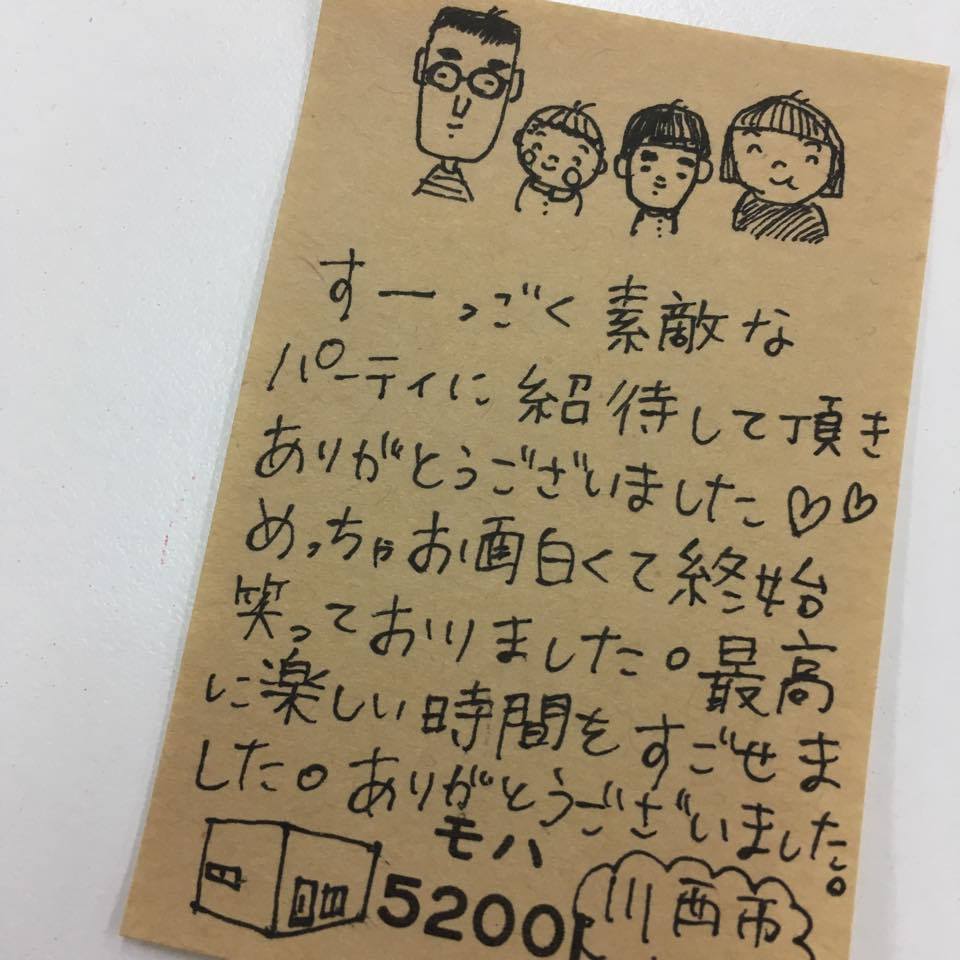 すーっごく素敵な
パーティに紹待して頂き
ありがとうございました♡♡
めっちゃお面白くて終始
笑っておりました。最高
に楽しい時間をすごせま
した。ありがとうございました。
モハ
5200
川西市